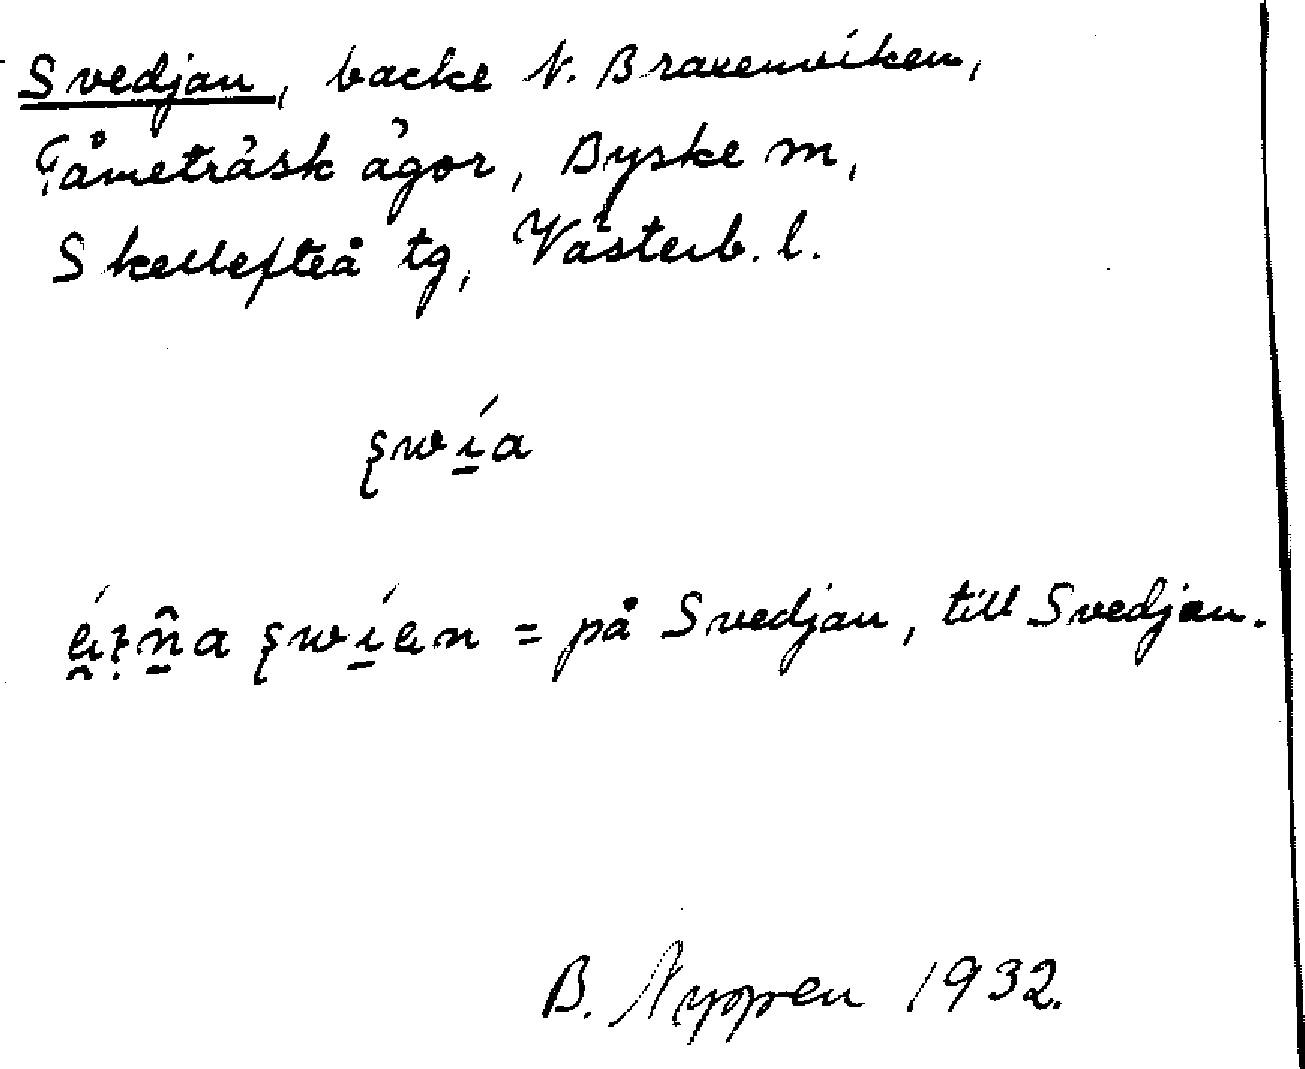 Svedjan, backe N. Bravenviken,
Tåmeträsk ägor, Byske m,
Skellefteå tg, Västerb. l.
swía
swían = på Svedjan, till Svedjan.
B. Nyppen 1932.